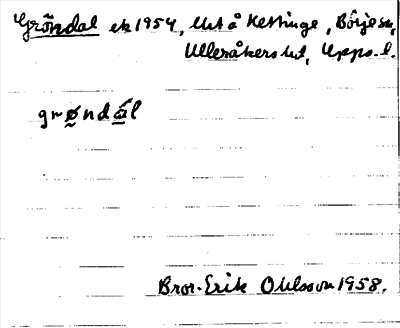 Gröndal ek 1954, Ut å Kettinge, Börje sn,
Ulleråkers hd, Upps. l.
grøndál
Bror-Erik Ohlsson 1958.